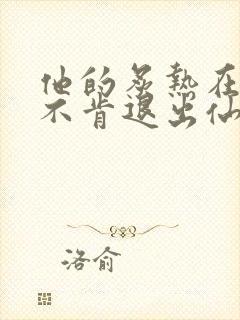 他的炙热在
不肯退出仙
洛俞